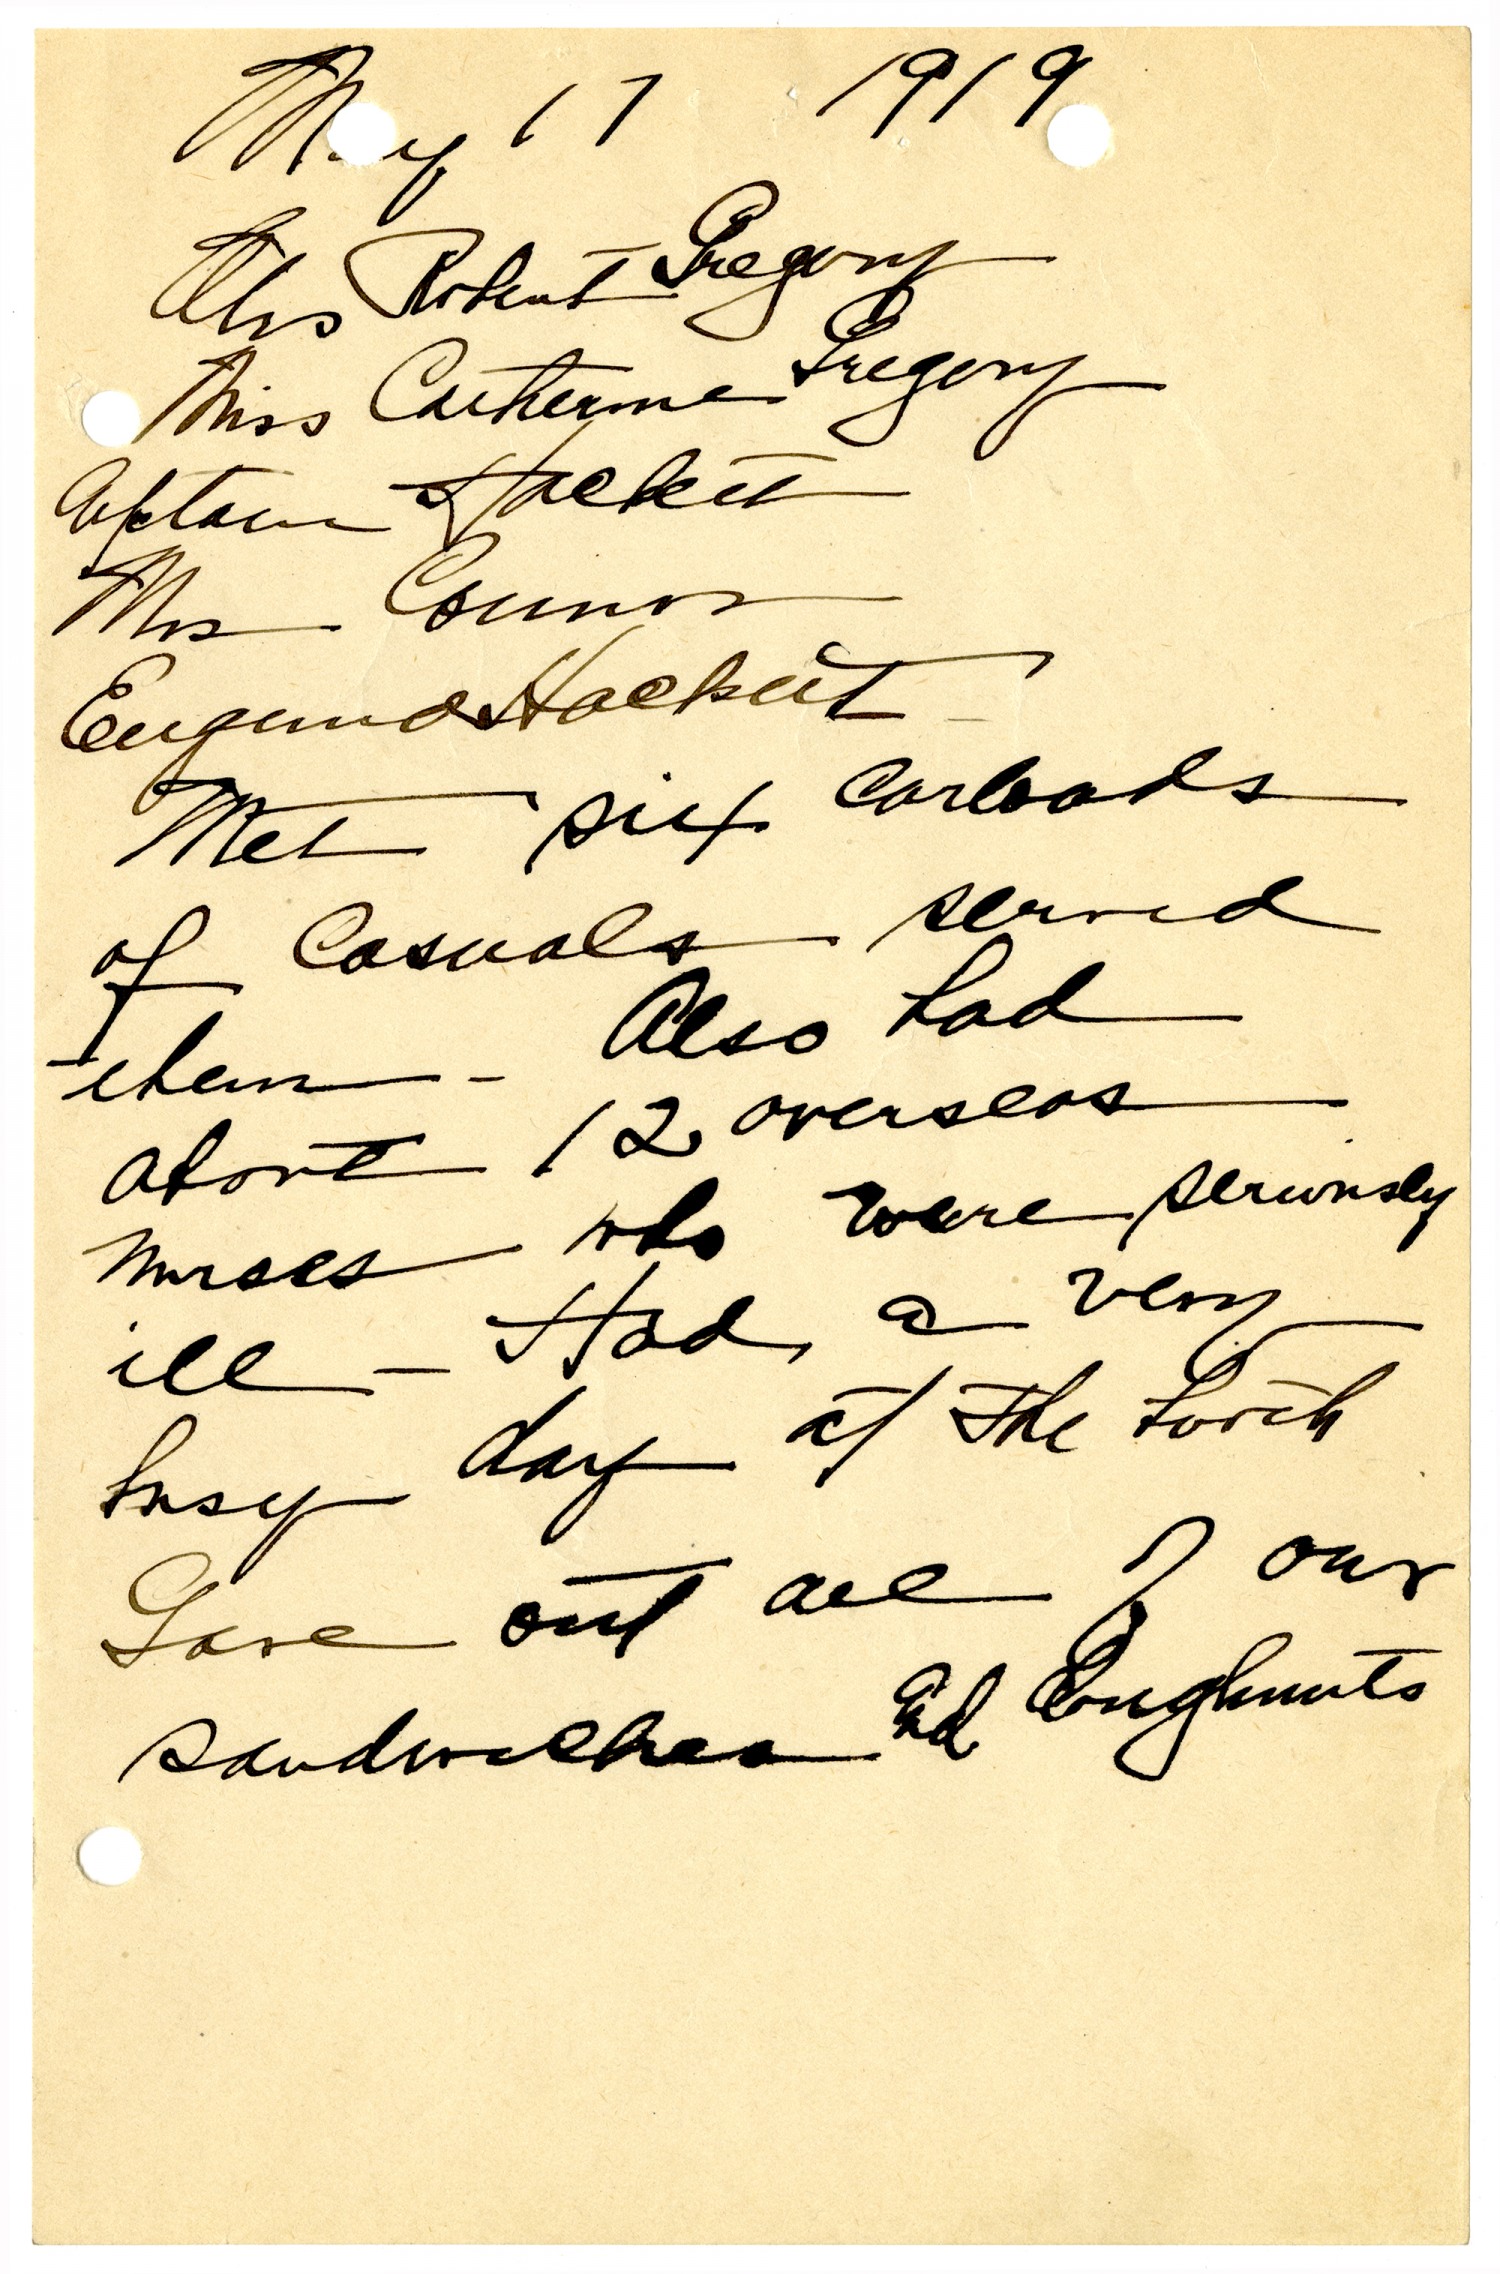 May 17 1919
Mrs Robert Gregory
Miss Catherine Gregory
Captain Hackett
Mrs Connor
Hackett
Met six carloads
of Casuals served
them - Also had
about 12 overseas
nurses who were seriously
ill - Had a very
busy day at the
Gave out all of our
sandwiches and Doughnuts